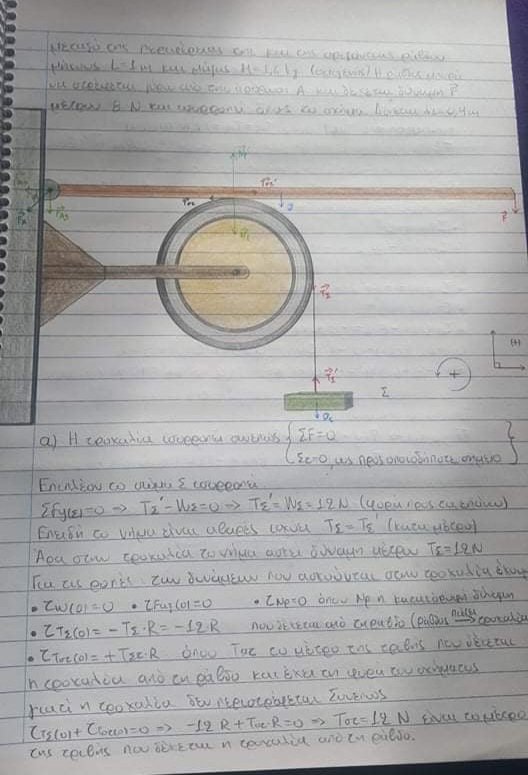 μεταξύ της και της οριζόντιας ράβδου
μήκους L=1m και μάζας M=1,6kg (ομογενής) Η ράβδος μπορεί
να στρέφεται γύρω από την άρθρωση A και δέχεται δύναμη F
μέτρου 8 N και ισορροπεί όπως το σχήμα Δίνεται 0,4m
N
Tστ'
Tστ
W
F
FA
N'
TΣ
TΣ'
Σ
WΣ
(+)
+
α) Η τροχαλία ισορροπεί συνεπώς { ΣF=0
Στ=0, ως προς οποιοδήποτε σημείο }
Επιπλέον το σώμα Σ ισορροπεί
ΣFy(Σ)=0 => TΣ'-WΣ=0 => TΣ'=WΣ=12N (φορά προς τα επάνω)
Επειδή το νήμα είναι αβαρές ισχύει TΣ'=TΣ (κατά μέτρο)
Άρα στην τροχαλία το νήμα ασκεί δύναμη μέτρου TΣ=12N
Για τις ροπές των δυνάμεων που ασκούνται στην τροχαλία έχουμε
• τW(O)=0 • τFαξ(O)=0 • τNρ=0 όπου Nρ η κατακόρυφη δύναμη
• τTΣ(O)= -TΣ·R=-12·R που δέχεται από τη ράβδο (ράβδος πιέζει → τροχαλία)
• τTστ(O)=+Tστ·R όπου Tστ το μέτρο της τριβής που δέχεται
η τροχαλία από τη ράβδο και έχει τη φορά του σχήματος
γιατί η τροχαλία δεν περιστρέφεται Συνεπώς
τTΣ(O)+τTστ(O)=0 => -12R+Tστ·R=0 => Tστ=12 N είναι το μέτρο
της τριβής που δέχεται η τροχαλία από τη ράβδο.